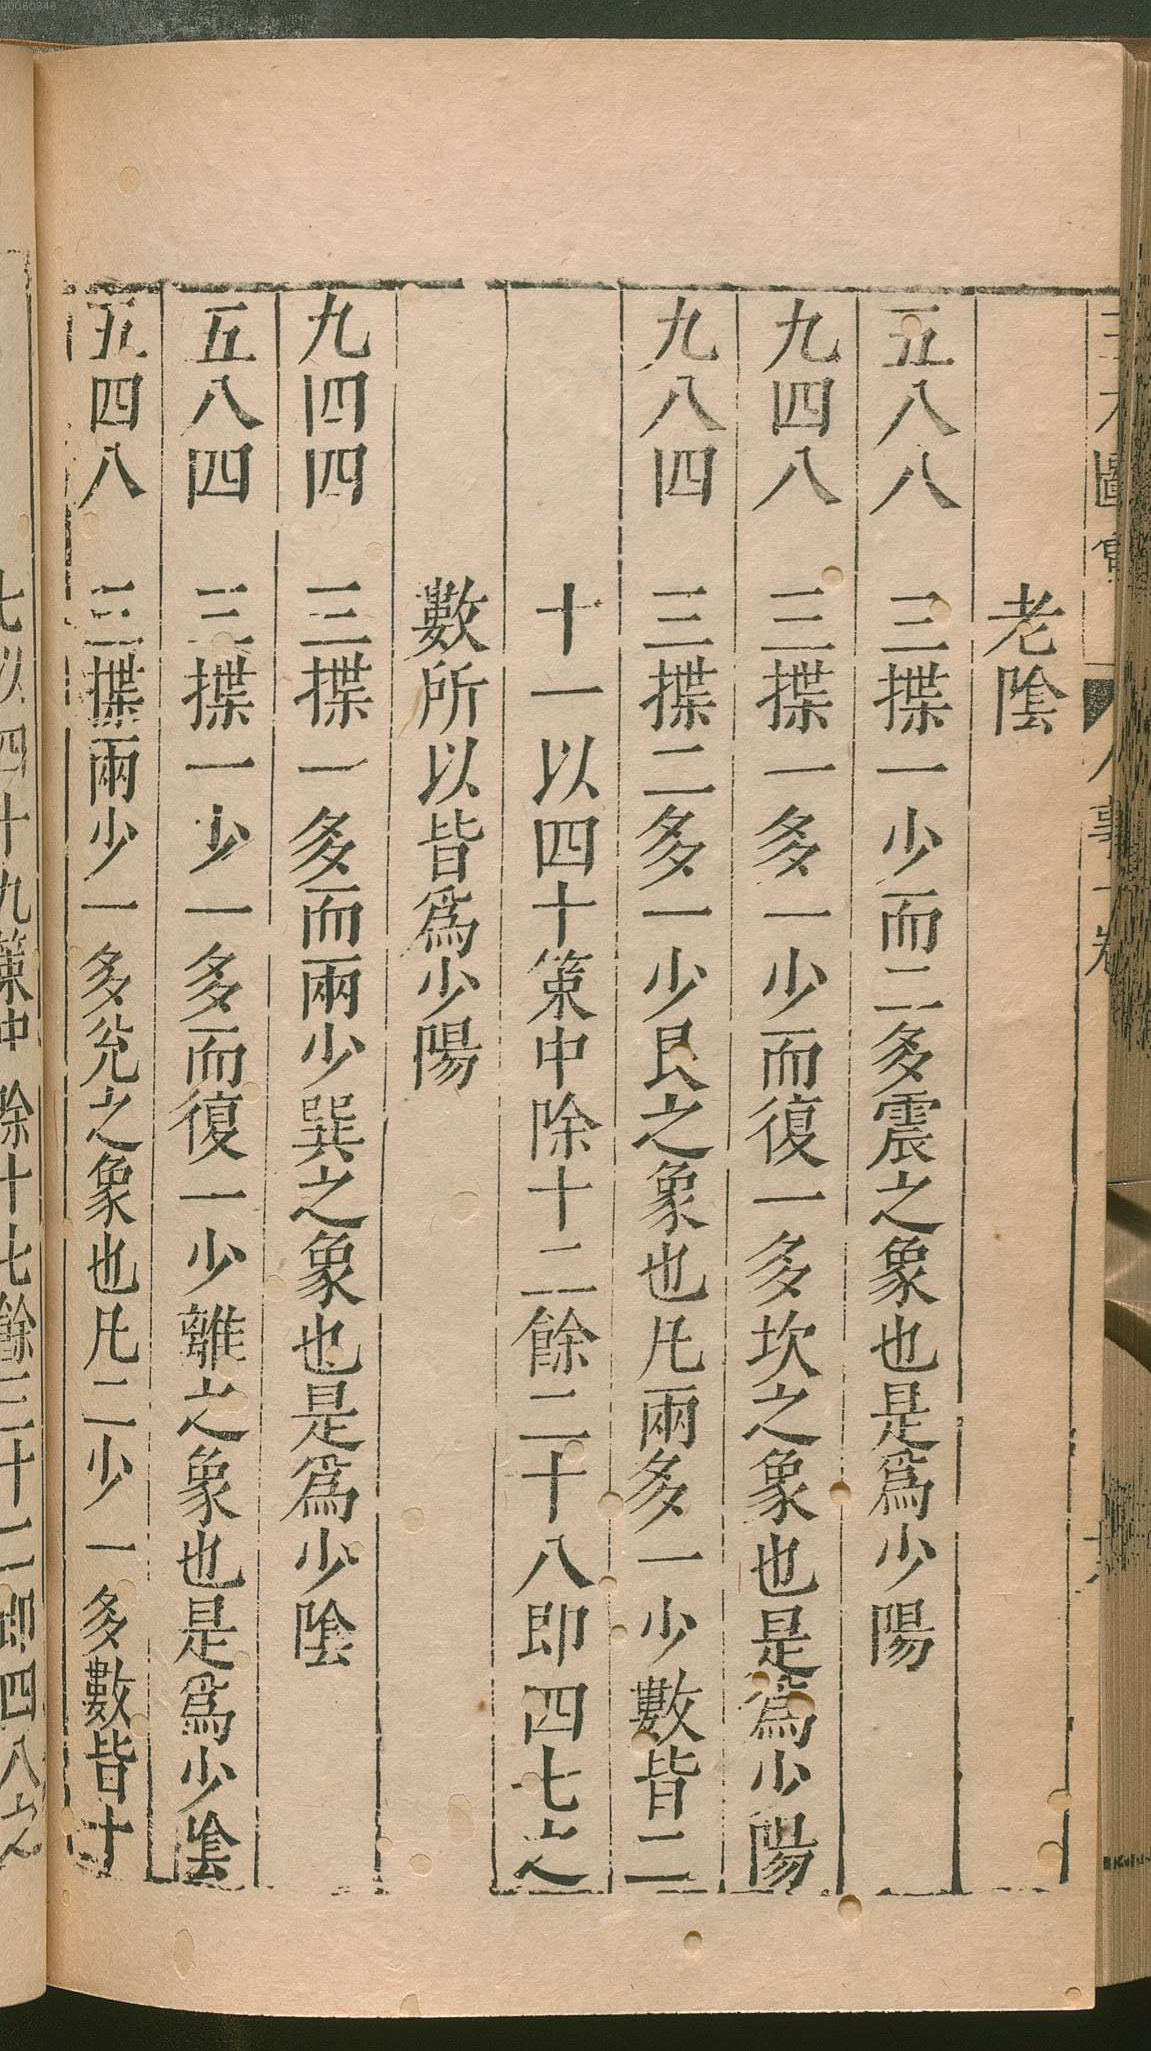 老陰
五八八　三揲一少而二多震之象也是爲少陽
九四八　三揲一多一少而復一多坎之象也是爲少陽
九八四　三揲二多一少艮之象也凡兩多一少數皆二
十一以四十策中除十二餘二十八即四七之
數所以皆爲少陽
九四四　三揲一多而兩少巽之象也是爲少陰
五八四　三揲一少一多而復一少離之象也是爲少陰
五四八　三揲兩少一多兊之象也凡二少一多數皆十
七以四十九策中除十七餘三十二即四八之
00060346